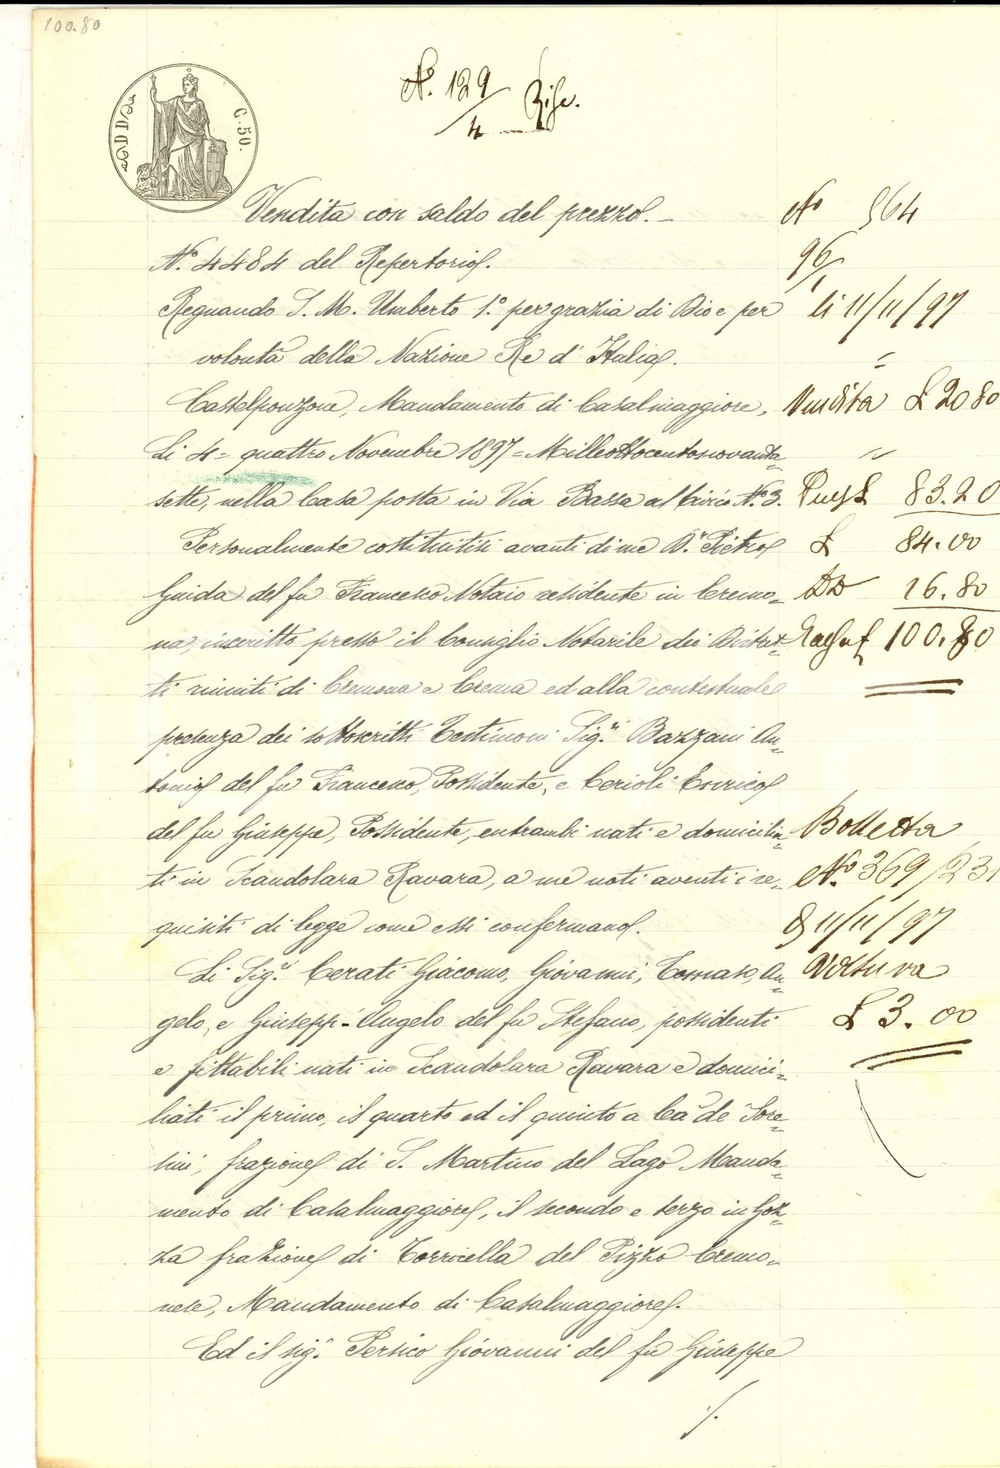 100.80
N.º 129
4
DD
C. 50.
Vendita con saldo del prezzo. –
N.º 4484 del Repertorio.
Regnando S. M. Umberto 1.º per grazia di Dio e per
volontà della Nazione Re d'Italia.
Castelponzone, Mandamento di Casalmaggiore,
Li 4 = quattro Novembre 1897 = Milleottocentonovanta=
sette, nella Casa posta in Via Bassa al Civico N.º 3.
Personalmente costituitisi avanti di me D.r Pietro
Guida del fu Francesco Notaio residente in Cremo=
na, inscritto presso il Consiglio Notarile dei Distret=
ti riuniti di Cremona e Crema ed alla contestuale
presenza dei sottoscritti Testimoni Sig.ri Bazzani An=
tonio del fu Francesco, Possidente, e Cerioli Enrico
del fu Giuseppe, Possidente, entrambi nati e domicilia=
ti in Scandolara Ravara, a me noti aventi i re=
quisiti di legge come essi confermano.
Li Sig.ri Cerati Giacomo, Giovanni, Tomaso, An=
gelo, e Giuseppe-Angelo del fu Stefano, possidenti
e fittabili nati in Scandolara Ravara e domici=
liati il primo, il quarto ed il quinto a Ca' de' Sore=
sini, frazione di S. Martino del Lago Manda=
mento di Casalmaggiore, il secondo e terzo in Goz=
za frazione di Torricella del Pizzo Cremo=
nese, Mandamento di Casalmaggiore.
Ed il sig.r Persico Giovanni del fu Giuseppe
./.
Nº 564
96
li 11/11/97
Vendita £ 2080
83.20
£ 84.00
DD 16.80
100.80
Bolletta
Nº 369/231
11/11/97
Voltura
£ 3.00